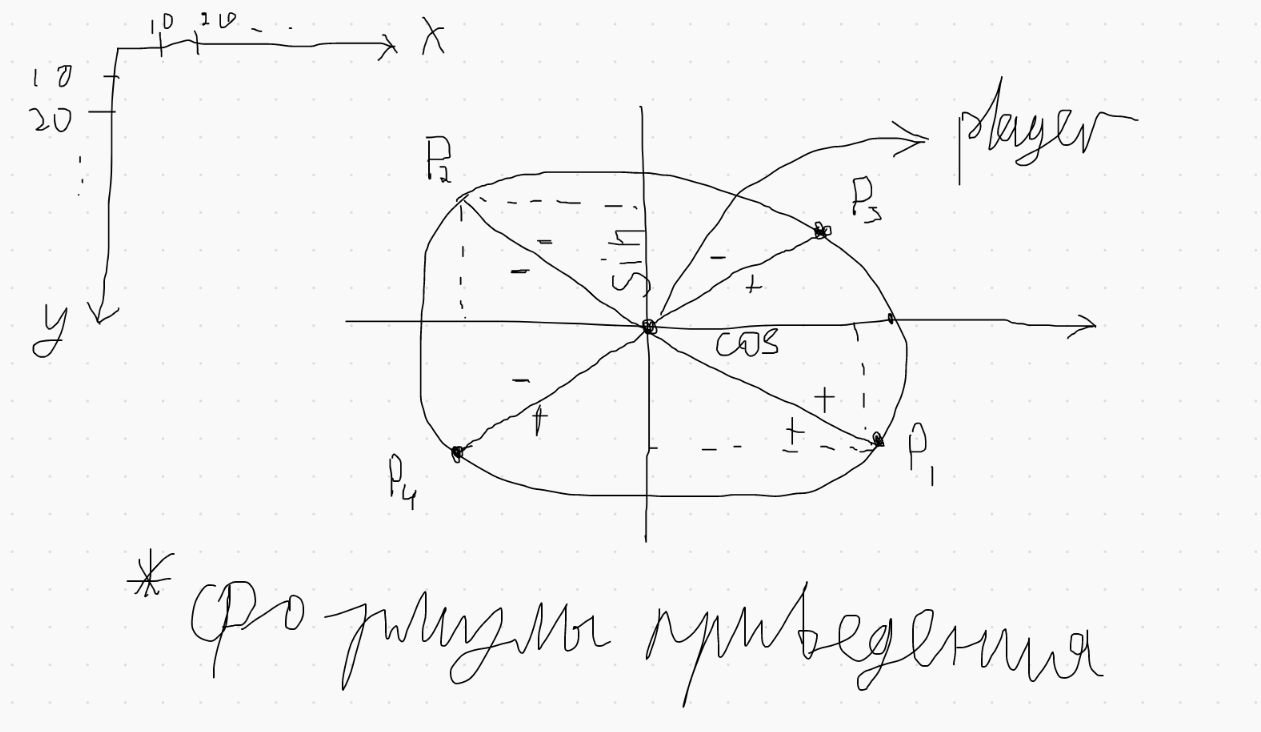 10 20 - -
X
10
20
y
player
P2
P3
- sin -
- +
cos
- +
+ +
P4
P1
* формулы приведения